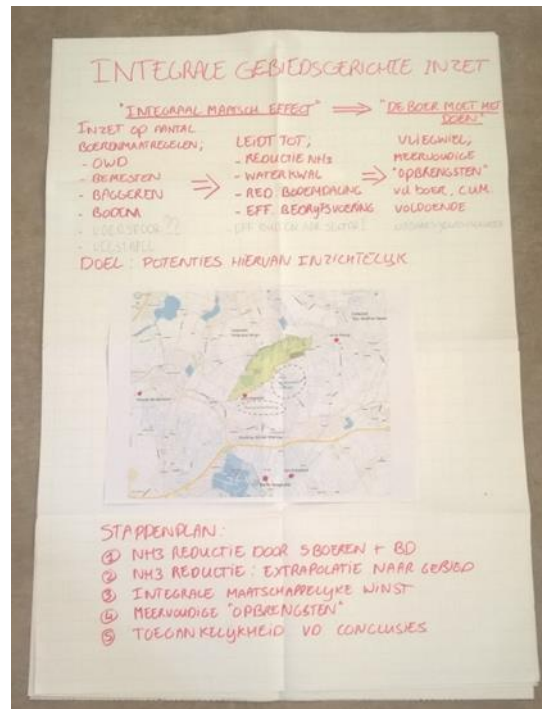 INTEGRALE GEBIEDSGERICHTE INZET
"INTEGRAAL MAATSCH. EFFECT" ⟹ "DE BOER MOET HET DOEN"
INZET OP AANTAL
BOERENMAATREGELEN;
- OWD
- BEMESTEN
- BAGGEREN
- BODEM
- VOERSPOOR ??
⟹
LEIDT TOT;
- REDUCTIE NH3
- WATERKWAL
- RED. BODEMDALING
- EFF. BEDRIJFSVOERING
⟹
VLIEGWIEL;
MEERVOUDIGE
"OPBRENGSTEN"
v.d. BOER, CUM.
VOLDOENDE
DOEL : POTENTIES HIERVAN INZICHTELIJK
STAPPENPLAN:
① NH3 REDUCTIE DOOR 5 BOEREN + BD
② NH3 REDUCTIE : EXTRAPOLATIE NAAR GEBIED
③ INTEGRALE MAATSCHAPPELIJKE WINST
④ MEERVOUDIGE "OPBRENGSTEN"
⑤ TOEGANKELIJKHEID VD CONCLUSIES